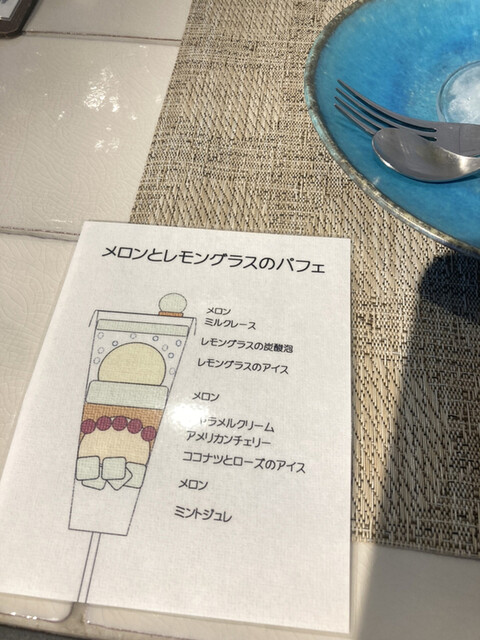 メロンとレモングラスのパフェ
メロン
ミルクレース
レモングラスの炭酸泡
レモングラスのアイス
メロン
ャラメルクリーム
アメリカンチェリー
ココナツとローズのアイス
メロン
ミントジュレ